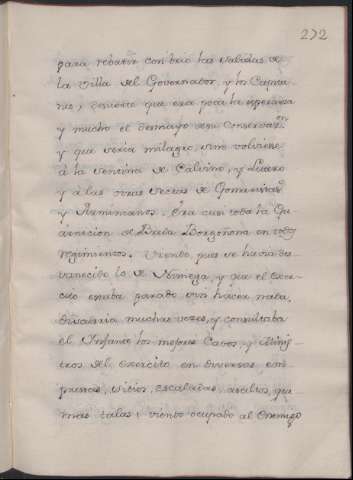 272
para rebatir con brio las salidas de
la Villa del Governator, y los Capita
nes; de suerte que era poca la esperanza
y mucho el desmayo de su Conservaon
y que seria milagro, sino volviese
à la sentina de Calvino, y Lutero
y à las otras sectas de Gomaristas
y Arminianos. Era casi toda la Gu
arnicion de Baxa Borgoñona en
regimientos. Viendo, pues se havia des
vanecido lo de Nimega, y que el exer
cito estaba parado sin hacer nada,
discurria muchas vezes, y consultaba
el Infante los mejores Cavos, y Minis
tros del exercito en diversas em
presas, sitios, escaladas, asaltos, que
mas, talas: viendo ocupado al Enemigo